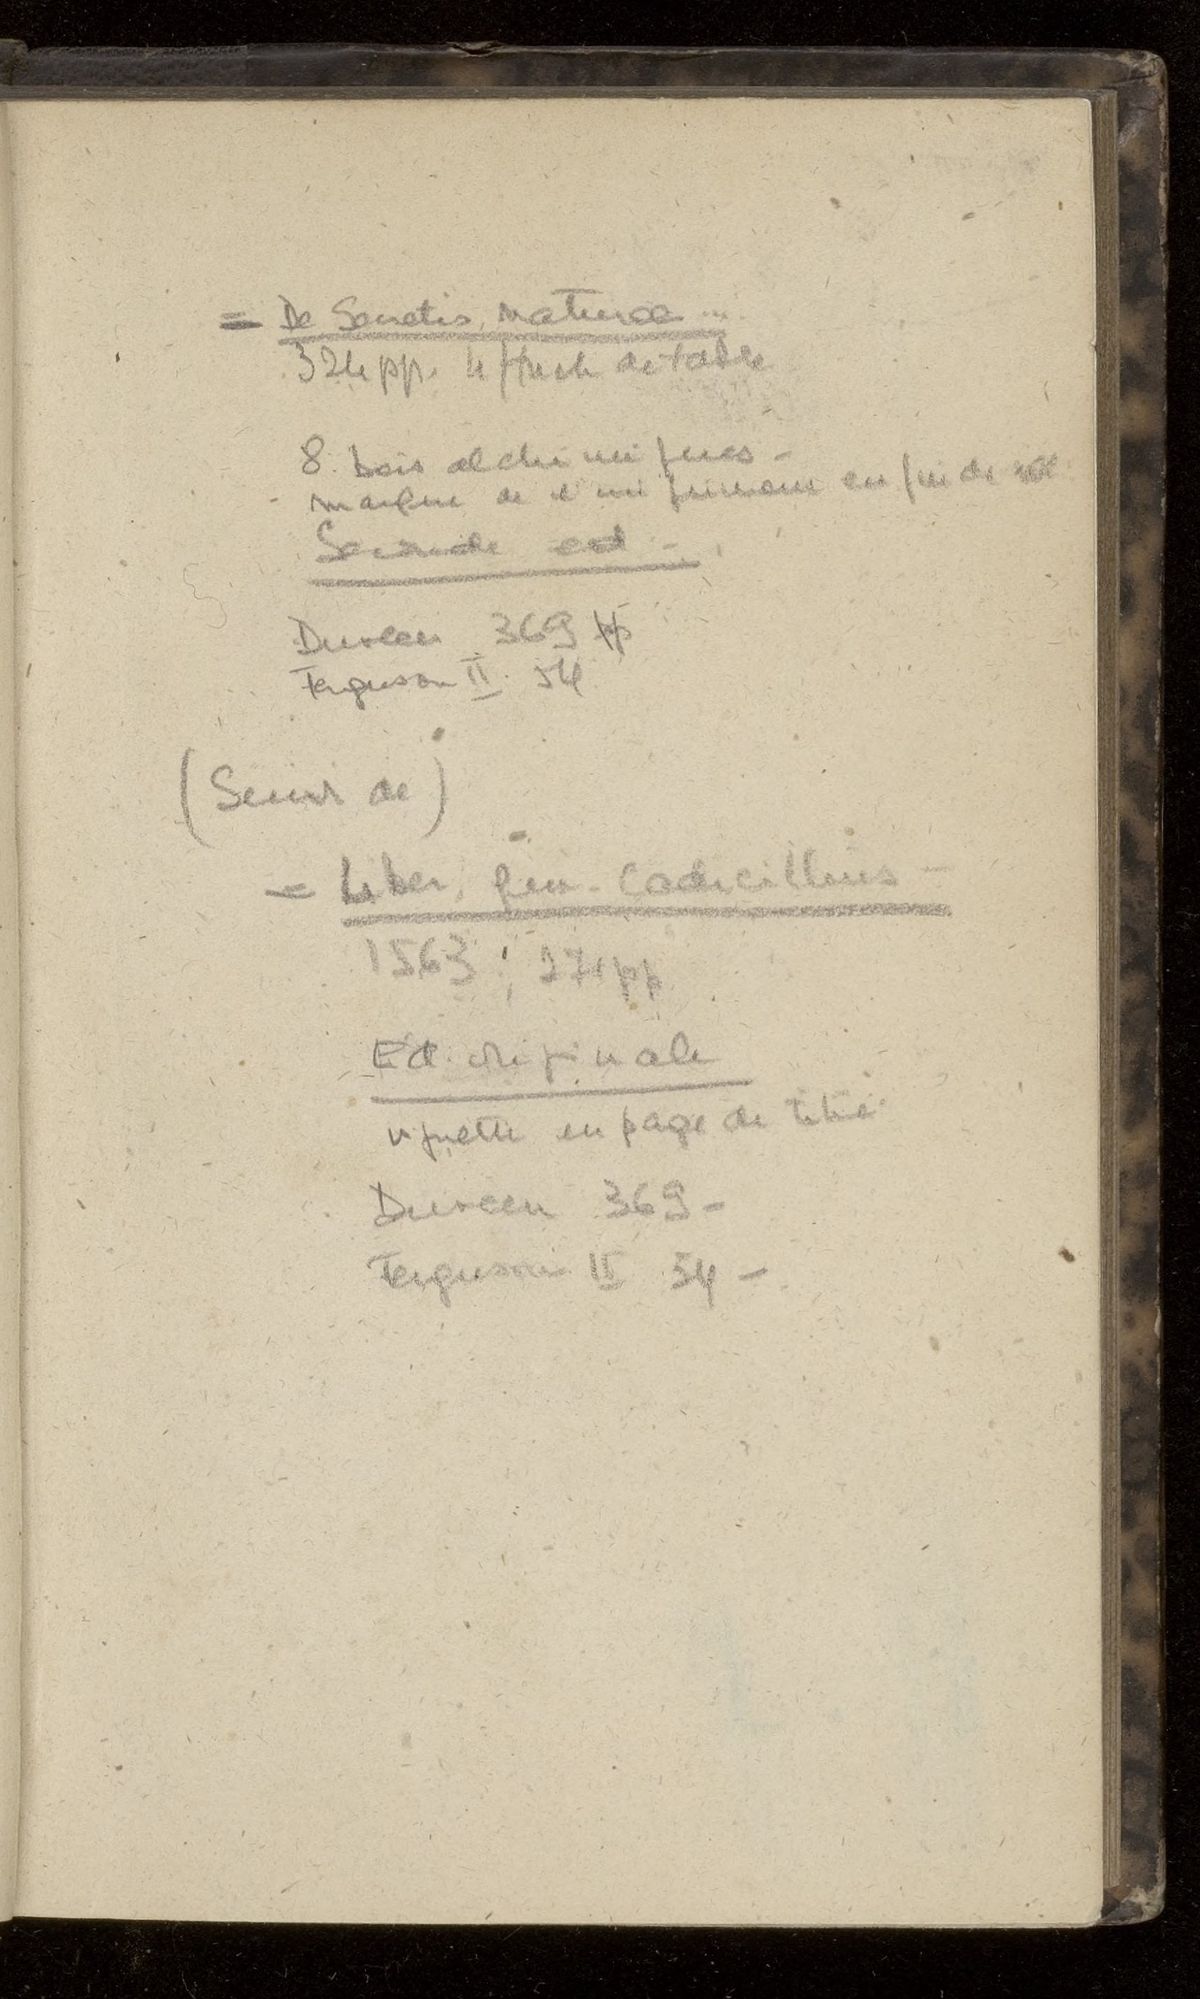 = De Secretis naturae ...
324 pp. 4 ff de table
8 bois alchimiques -
marque de l'imprimeur en fin de
Seconde ed -
Duveen 369
Ferguson II. 54
(Suivi de)
= Liber, qui Codicillus -
1563 ; pp
Ed. originale
vignette en page de titre
Duveen 369 -
Ferguson II 54 -